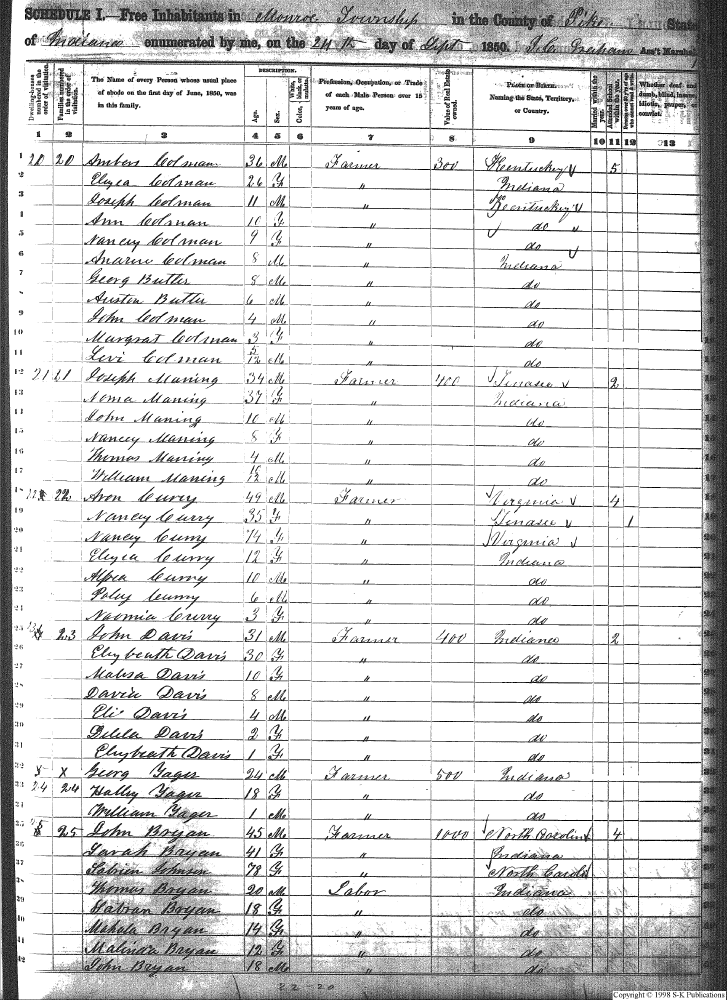 SCHEDULE I.—Free Inhabitants in Monroe Township in the County of Pike State
of Indiana enumerated by me, on the 24th day of Sept 1850. J. C. Graham Ass't Marshal
Dwelling-houses numbered in the order of visitation.
Families numbered in the order of visitation.
The Name of every Person whose usual place of abode on the first day of June, 1850, was in this family.
DESCRIPTION.
Age.
Sex.
Color, White, black, or mulatto.
Profession, Occupation, or Trade of each Male Person over 15 years of age.
Value of Real Estate owned.
PLACE OF BIRTH. Naming the State, Territory, or Country.
Married within the year.
Attended School within the year.
Whether deaf and dumb, blind, insane, idiotic, pauper, or convict.
1 2 3 4 5 6 7 8 9 10 11 12 13
1 20 20 Ambers Colman 36 M Farmer 300 Kentucky 5
2 Elyza Colman 26 F " Indiana
3 Joseph Colman 11 M " Kentucky
4 Ann Colman 10 F " do "
5 Nancy Colman 9 F " do
6 Colman 8 M " Indiana
7 Georg Butler 8 M " do
8 Auston Butler 6 M " do
9 John Colman 4 M " do
10 Margrat Colman 3 F " do
11 Levi Colman 5/12 M " do
12 21 21 Joseph Maning 34 M Farmer 400 Tenasee 2
13 Noma Maning 37 F " Indiana
14 John Maning 10 M " do
15 Nancy Maning 8 F " do
16 Thomas Maning 4 M " do
17 William Maning 10/12 M " do
18 22 22 Aron Curry 49 M Farmer Virginia 4
19 Nancy Curry 35 F " Tenasee 1
20 Nancy Curry 74 F " Virginia
21 Elyza Curry 12 F " Indiana
22 Curry 10 M " do
23 Curry 6 M " do
24 Naomia Curry 3 F " do
25 23 John Davis 31 M Farmer 400 Indiana 2
26 Elizbeath Davis 30 F " do
27 Malisa Davis 10 F " do
28 David Davis 8 M " do
29 Eli Davis 4 M " do
30 Delila Davis 2 F " do
31 Elizbeath Davis 1 F " do
32 x Georg Yager 24 M Farmer 500 Indiana
33 24 24 Yager 18 F " do
34 William Yager 1 M " do
35 25 25 John Bryan 45 M Farmer 1000 North Carolin 4
36 Sarah Bryan 41 F " Indiana
37 Johnson 78 F " North Carol
38 Thomas Bryan 20 M Labor Indiana
39 Bryan 18 F " do
40 Mahala Bryan 14 F " do
41 Malinda Bryan 12 F " do
42 John Bryan 18 M " do
22-20
Copyright © 1998 S-K Publications